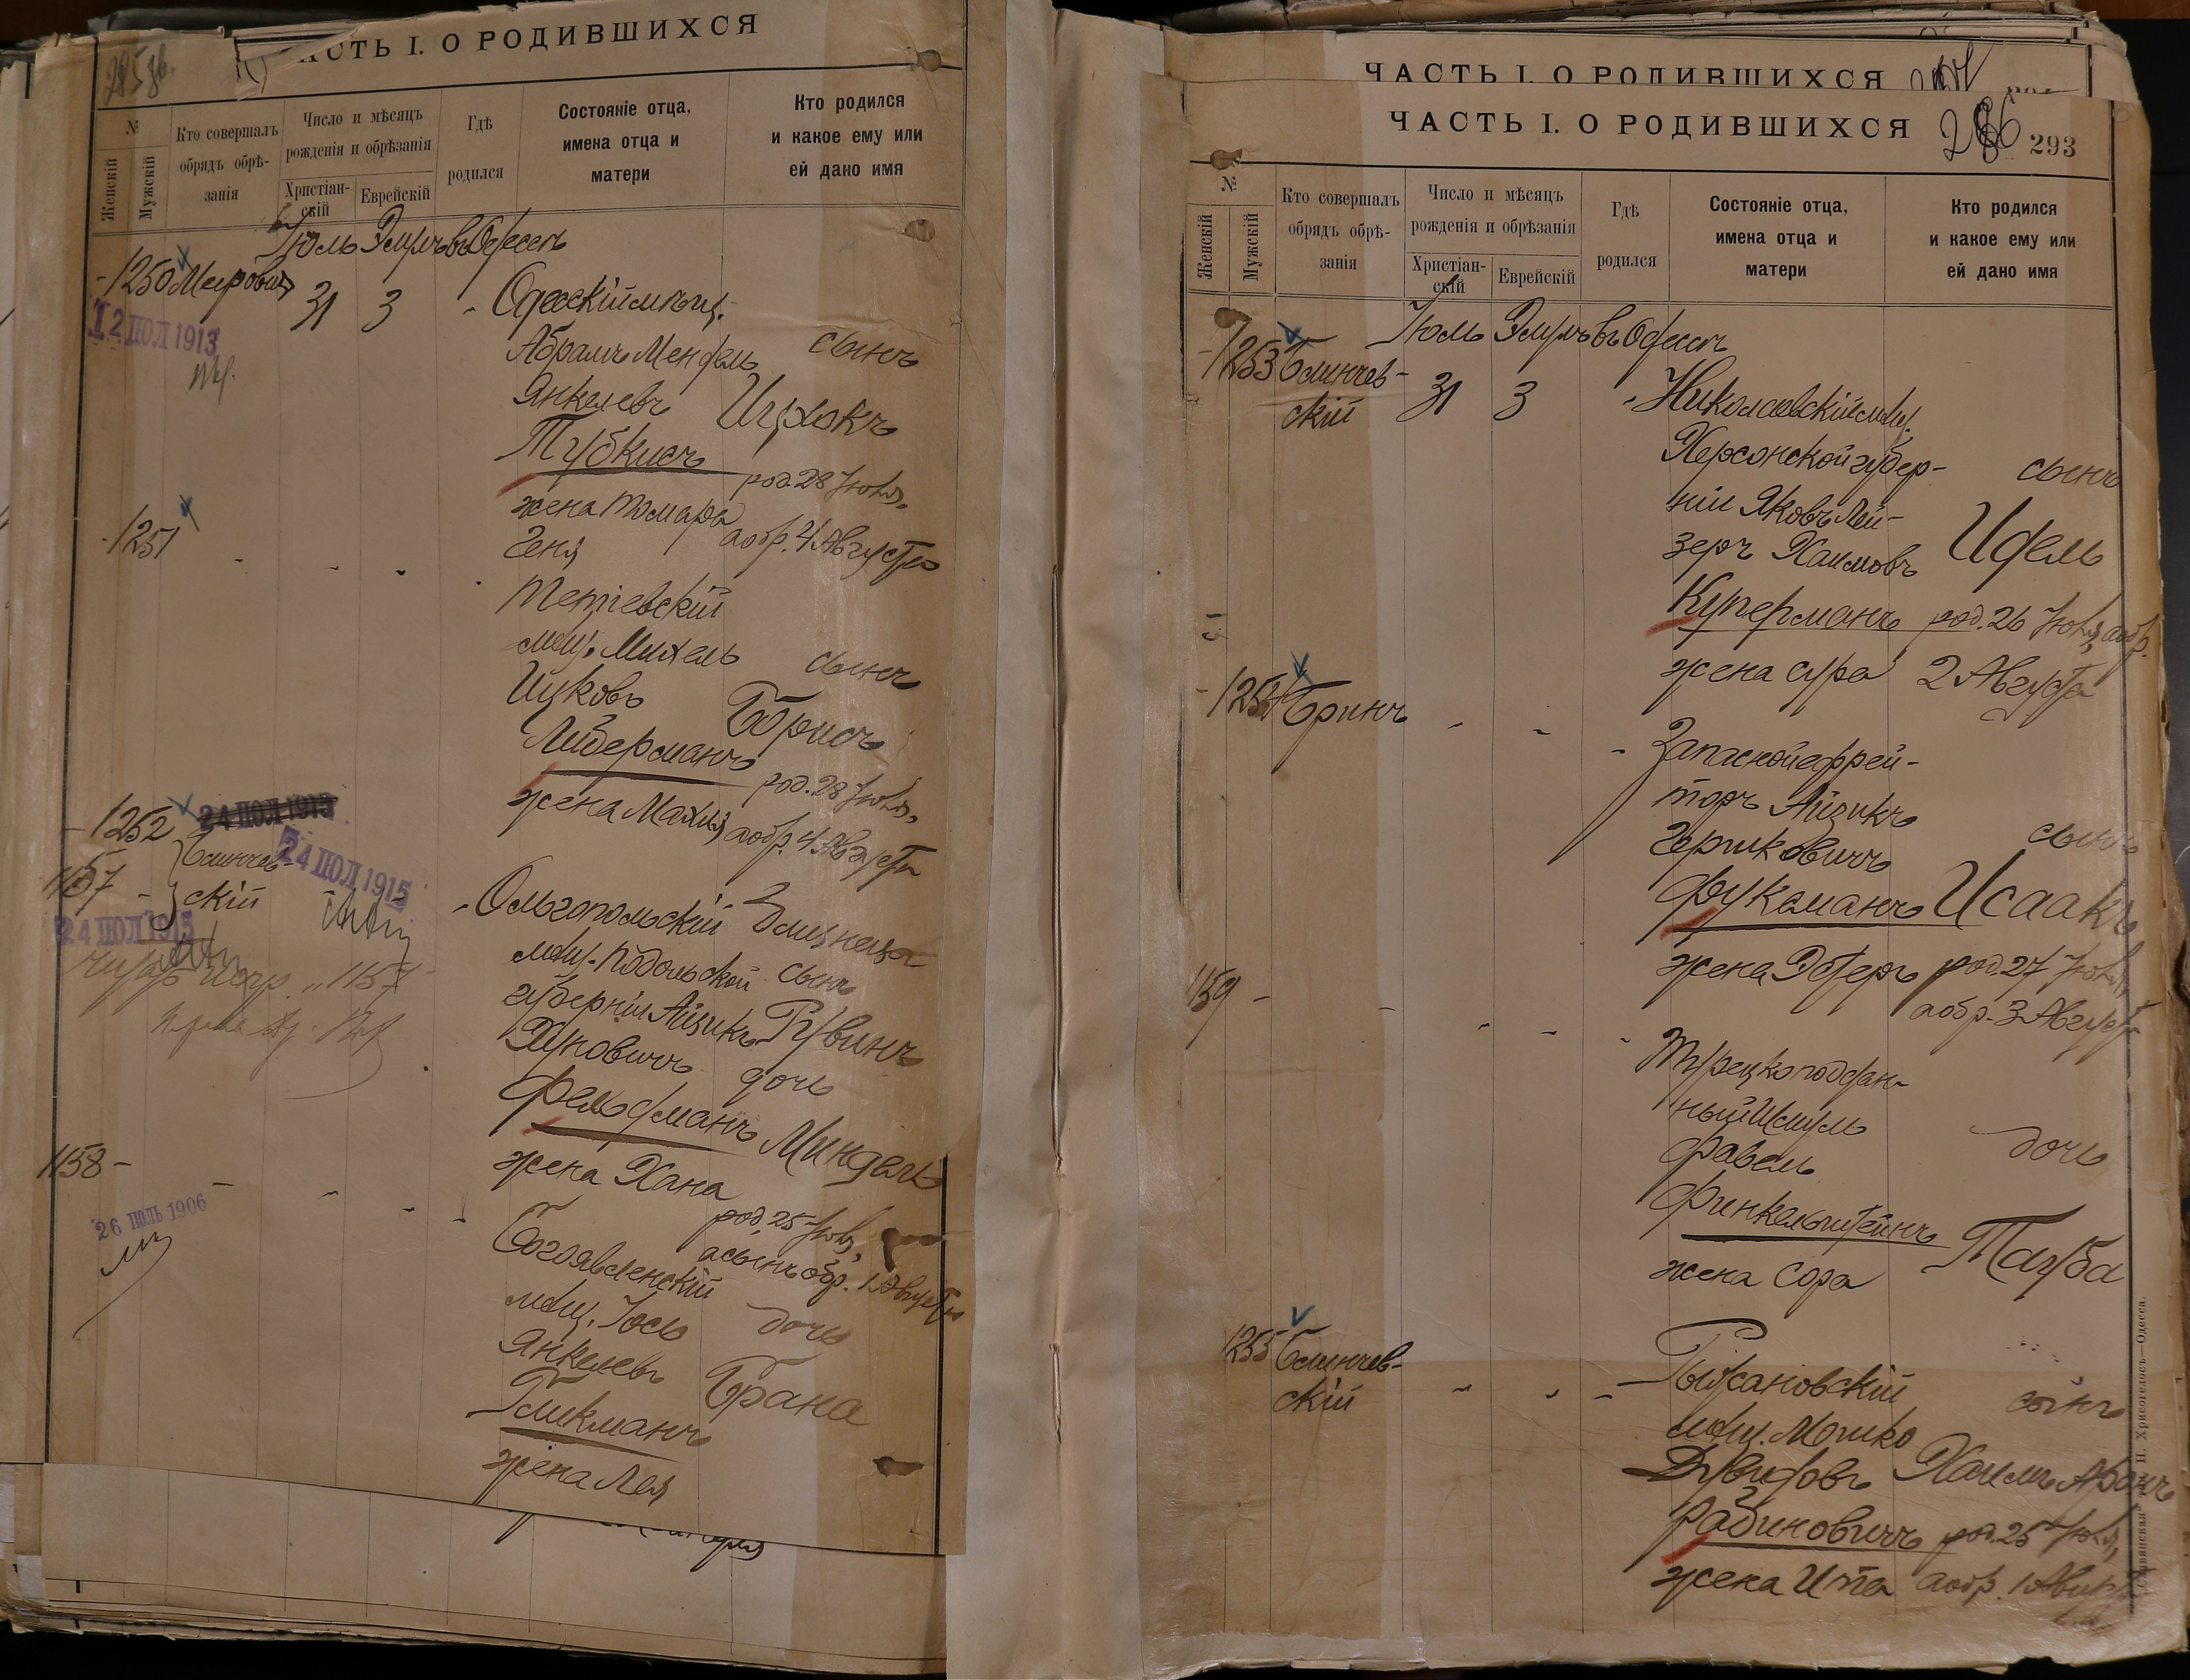 ЧАСТЬ I. О РОДИВШИХСЯ
№
Женскій
Мужскій
Кто совершалъ обрядъ обрѣ-занія
Число и мѣсяцъ рожденія и обрѣзанія
Христіан-скій
Еврейскій
Гдѣ родился
Состояніе отца, имена отца и матери
Кто родился и какое ему или ей дано имя
Іюль Элулъ въ Одессѣ
1250 Меерович 31 3 Одесскій мѣщ.
12 ІЮЛ 1913
Абрамъ Мендель сынъ
Янкелевъ Ицхокъ
Губкисъ
род. 28 Іюля,
жена Тамара
а обр. 4 Августа
Геня
1251
Тетіевскій
мѣщ. Михель сынъ
Ицковъ Борисъ
Либерманъ
род. 28 Іюля,
жена Махля
а обр. 4 Августа
1252
24 ІЮЛ 1915
Блинчев-
1157
скій
24 ІЮЛ 1915
24 ІЮЛ 1915
Ольгопольскій Близнецы
мѣщ. Подольской сынъ
губерніи Айзикъ Рувинъ
Дуковичъ дочь
Фельдманъ Миндель
жена Хана
род. 25 Іюля,
а сынъ обр. 1 Августа
1158
26 ІЮЛЬ 1906
Богоявленскій
мѣщ. Іось дочь
Янкелевъ Брана
Гликманъ
жена Лея
ЧАСТЬ I. О РОДИВШИХСЯ
ЧАСТЬ I. О РОДИВШИХСЯ 286 293
№
Женскій
Мужскій
Кто совершалъ обрядъ обрѣ-занія
Число и мѣсяцъ рожденія и обрѣзанія
Христіан-скій
Еврейскій
Гдѣ родился
Состояніе отца, имена отца и матери
Кто родился и какое ему или ей дано имя
Іюль Элулъ въ Одессѣ
1253 Блинчев-
скій 31 3 Николаевскій мѣщ.
Херсонской губер- сынъ
ніи Яковъ Лей-
зеръ Хаимовъ Идель
Куперманъ род. 26 Іюля, а обр.
жена Сура 2 Августа
1254 Бринъ
Запасной ефрей-
торъ Айзикъ сынъ
Гершковичъ
Фуксманъ Исаакъ
жена Эстеръ род. 27 Іюля,
а обр. 3 Августа
1159
Турецкоподдан-
ный Шмуль дочь
Фавель
Финкельштейнъ
жена Сора Тауба
1255 Блинчев-
скій
Рыжановскій сынъ
мѣщ. Мошко
Дувидовъ Хаимъ Аронъ
Рабиновичъ род. 25 Іюля,
жена Ита а обр. 1 Августа
Хрисогелосъ—Одесса.